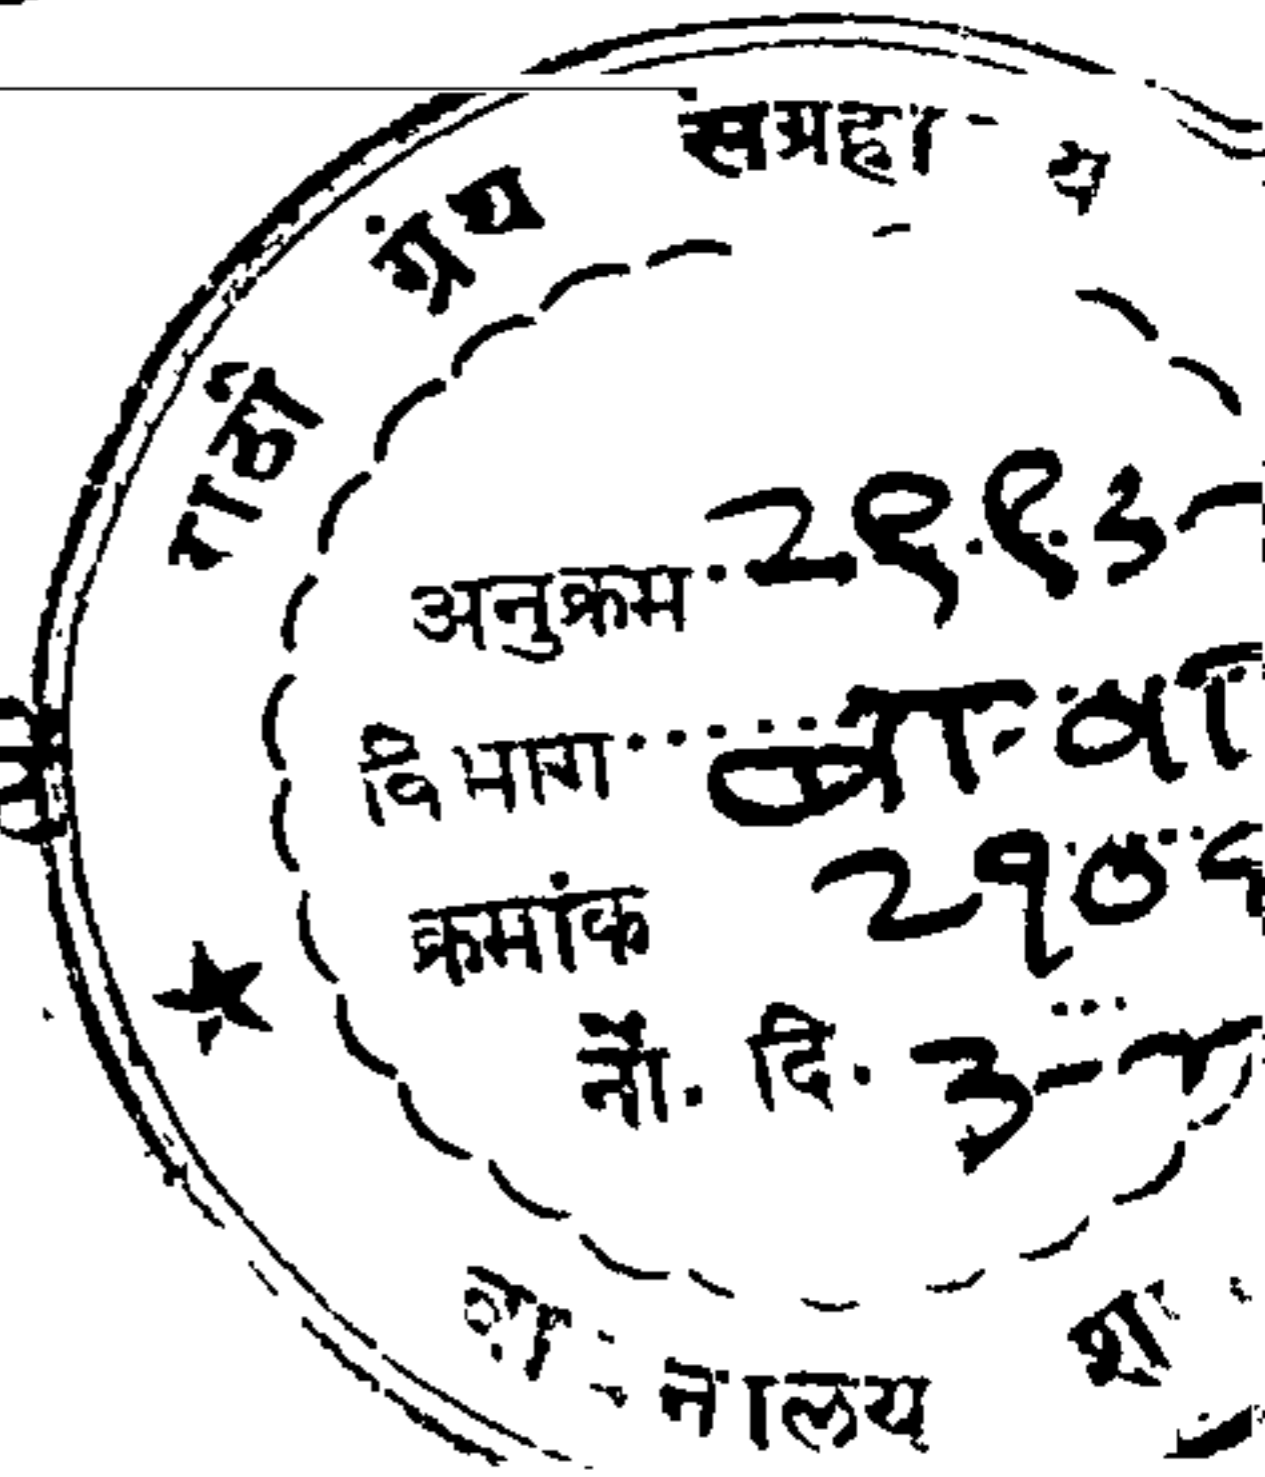 राठी ग्रंथ संग्रहा य
अनुक्रम २९९३-
विभाग बा. वा
क्रमांक २१०६
नों. दि. ३-
वा नालय शा